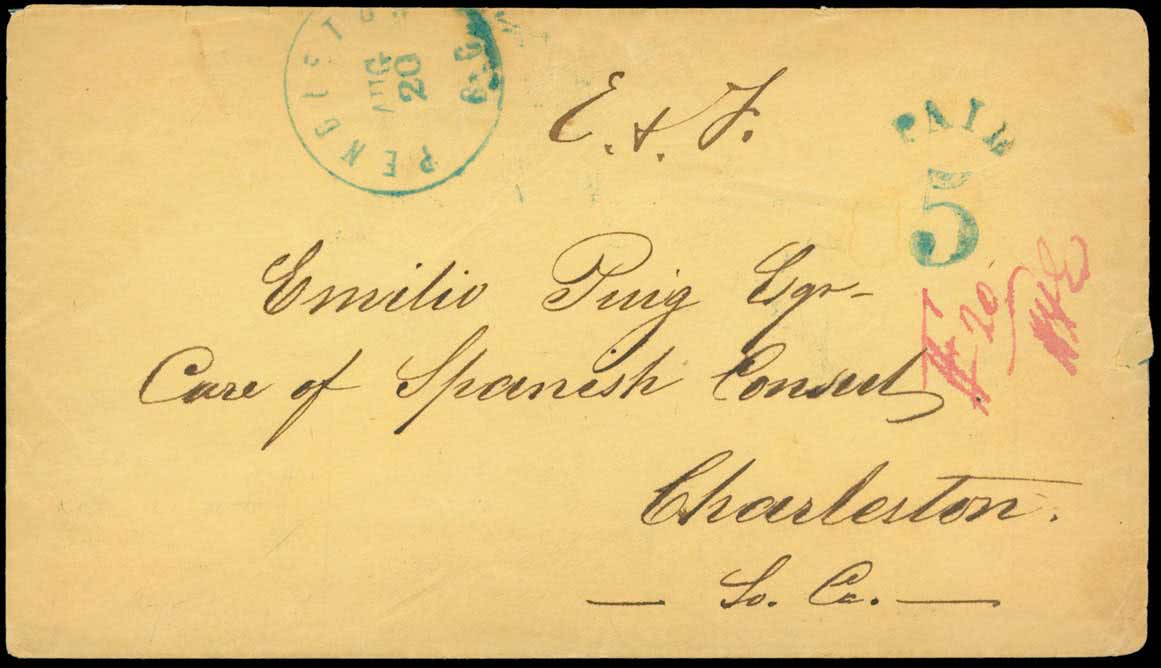 AUG
20
E. & F.
PAID
5
Emilio Puig Esqr-
Care of Spanish Consul
Charleston.
So. Ca.